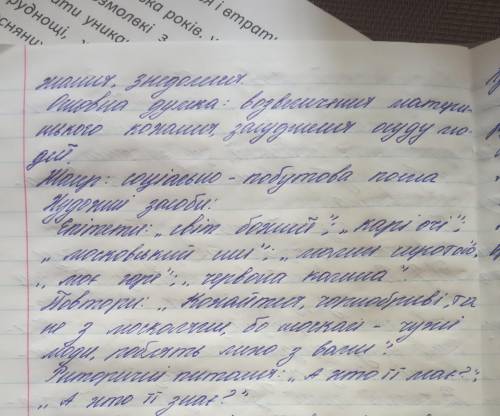 я і втрати
ька років, у
розмовкі з
руднощі,
ати уника
існяни
знання, знедолення.
Основна думка: возвеличення матери-
нського кохання, засудження осуду лю-
дей.
Жанр: соціально - побутова поема
Художні засоби:
Епітети: „світ божий"; „карі очі";
„московський ; „
„моє горе"; „червона калина"
Повтори: „Кохайтеся, чорнобриві, та
не з москалями, бо москалі - чужі
люди, роблять лихо з вами".
Риторичні питання: „А хто її має?";
„А хто її знає?"